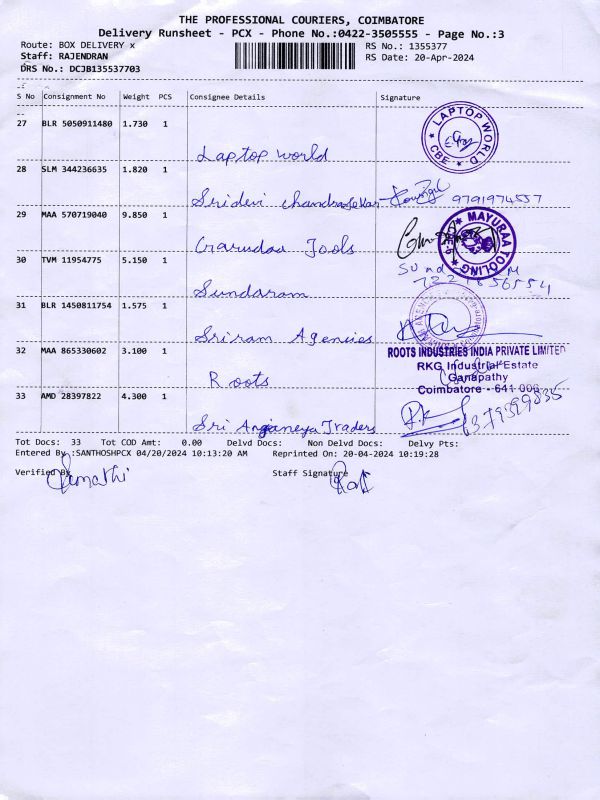 THE PROFESSIONAL COURIERS, COIMBATORE
Delivery Runsheet - PCX - Phone No.:0422-3505555 - Page No.:3
Route: BOX DELIVERY x
RS No.: 1355377
Staff: RAJENDRAN
RS Date: 20-Apr-2024
DRS No.: DCJB135537703
S No Consignment No Weight PCS Consignee Details Signature
27 BLR 5050911480 1.730 1
Laptop world
LAPTOP WORLD
CBE
28 SLM 344236635 1.820 1
Sridevi chandrasekar
9791974557
29 MAA 570719040 9.850 1
Garudaa Tools
MAYURAA TOOLING
30 TVM 11954775 5.150 1
Sundaram
31 BLR 1450811754 1.575 1
Sriram Agencies
32 MAA 865330602 3.100 1
Roots
ROOTS INDUSTRIES INDIA PRIVATE LIMITED
RKG Industrial Estate
Ganapathy
Coimbatore - 641 006
33 AMD 28397822 4.300 1
Sri Anjaneya Traders
Tot Docs: 33 Tot COD Amt: 0.00 Delvd Docs: Non Delvd Docs: Delvy Pts:
Entered By :SANTHOSHPCX 04/20/2024 10:13:20 AM Reprinted On: 20-04-2024 10:19:28
Verified By
Staff Signature